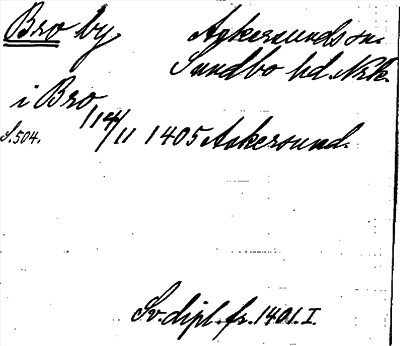 Bro by
Askersunds sn.
Sundbo hd. Nrk.
i Bro
14/11 1405 Askersund.
S. 504.
Sv. dipl. fr. 1401. I.